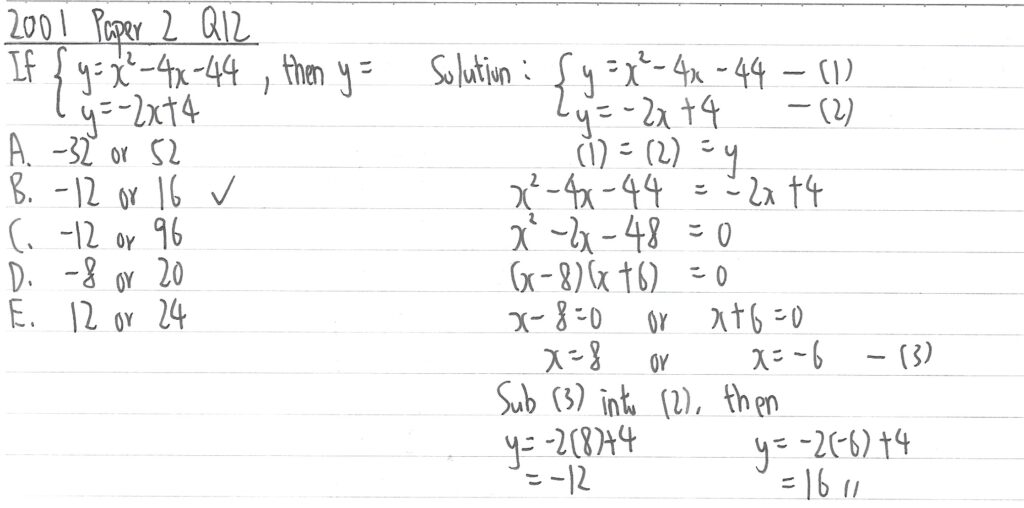 2001 Paper 2 Q12
If { y = x² - 4x - 44 , then y =
y = -2x + 4
A. -32 or 52
B. -12 or 16 ✓
C. -12 or 96
D. -8 or 20
E. 12 or 24
Solution : { y = x² - 4x - 44 — (1)
y = -2x + 4 — (2)
(1) = (2) = y
x² - 4x - 44 = -2x + 4
x² - 2x - 48 = 0
(x - 8)(x + 6) = 0
x - 8 = 0 or x + 6 = 0
x = 8 or x = -6 — (3)
Sub (3) into (2), then
y = -2(8) + 4 y = -2(-6) + 4
= -12 = 16 //